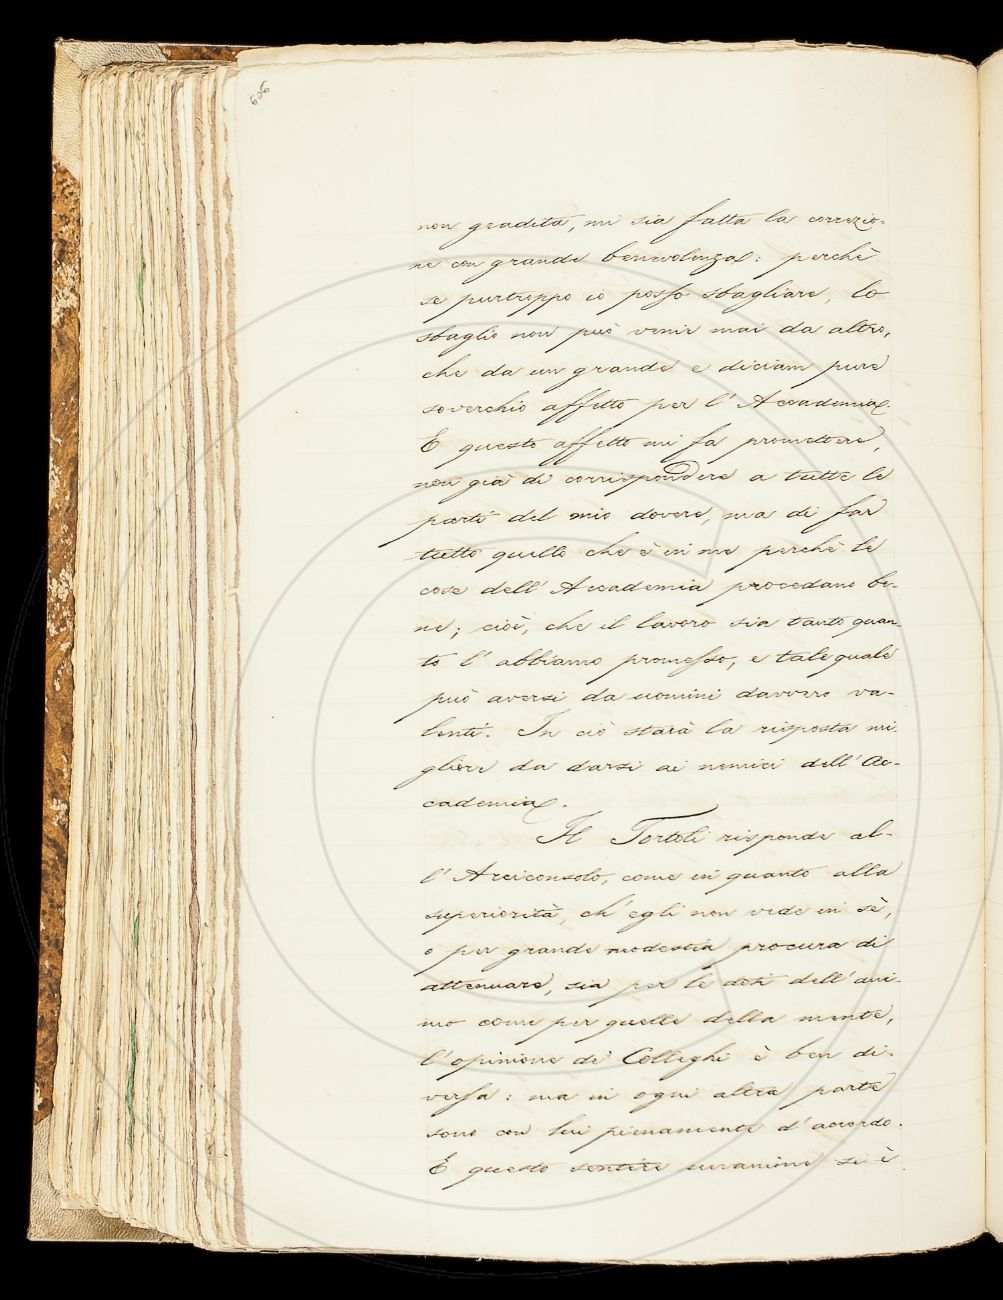 606
non gradita, mi sia fatta la correzio-
ne con grande benevolenza: perchè
se purtroppo io posso sbagliare, lo
sbaglio non può venir mai da altro,
che da un grande e diciam pure
soverchio affetto per l' Accademia.
E questo affetto mi fa promettere,
non già di corrispondere a tutte le
parti del mio dovere, ma di far
tutto quello che è in me perchè le
cose dell' Accademia procedano be-
ne; cioè, che il lavoro sia tanto quan-
to l' abbiamo promesso, e tale quale
può aversi da uomini davvero va-
lenti. In ciò starà la risposta mi-
gliore da darsi ai nemici dell' Ac-
cademia.
Il Tortoli risponde al-
l' Arciconsolo, come in quanto alla
superiorità, ch' egli non vede in sè,
e per grande modestia procura di
attenuare, sia per le doti dell' ani-
mo come per quelle della mente,
l' opinione de' Colleghi è ben di-
versa: ma in ogni altra parte
sono con lui pienamente d' accordo.
E questo sentire unanime si è